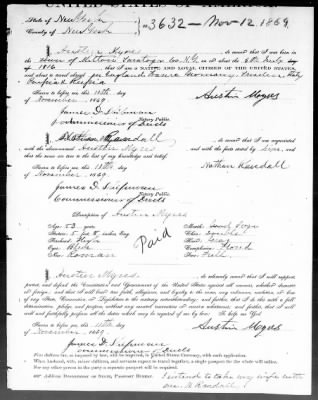 UNITED STATES OF AMERICA.
State of New York
County of New York
No 3632 - Nov 12, 1869.
I, Austin Myres, do swear that I was born in the
town of Milton Saratoga Co. N.Y. on the 4th July
1816, that I am a NATIVE AND LOYAL CITIZEN OF THE UNITED STATES,
and about to travel abroad to England France Germany Sweden Italy
Russia
Sworn to before me this 11th day
of November 1869.
Austin Myres
James D.
Notary Public.
Commissioner of Deeds
I, Nathan Randall, do swear that I am acquainted
with the above named Austin Myres and with the facts stated by him, and
that the same are true to the best of my knowledge and belief.
Sworn to before me this 11th day
of November 1869.
Nathan Randall
James D.
Notary Public.
Commissioner of Deeds
Description of Austin Myres
Age: 53 years
Mouth:
Stature: 5 feet 8 inches Eng.
Chin: Double
Forehead: High
Hair: Gray
Eyes: Blue
Complexion: Florid
Nose: Roman
Face: Full
Paid
I, Austin Myres, do solemnly swear that I will support,
protect, and defend the Constitution and Government of the United States against all enemies, whether domestic
or foreign; and that I will bear true faith, allegiance, and loyalty to the same, any ordinance, resolution, or law
of any State, Convention, or Legislature to the contrary notwithstanding; and further, that I do this with a full
determination, pledge, and purpose, without any mental reservation or evasion whatsoever; and further, that I will
well and faithfully perform all the duties which may be required of me by law. So help me God!
Sworn to before me this 11th day
of November 1869.
Austin Myres
James D.
Notary Public.
Commissioner of Deeds
I intend to take my wife with
me